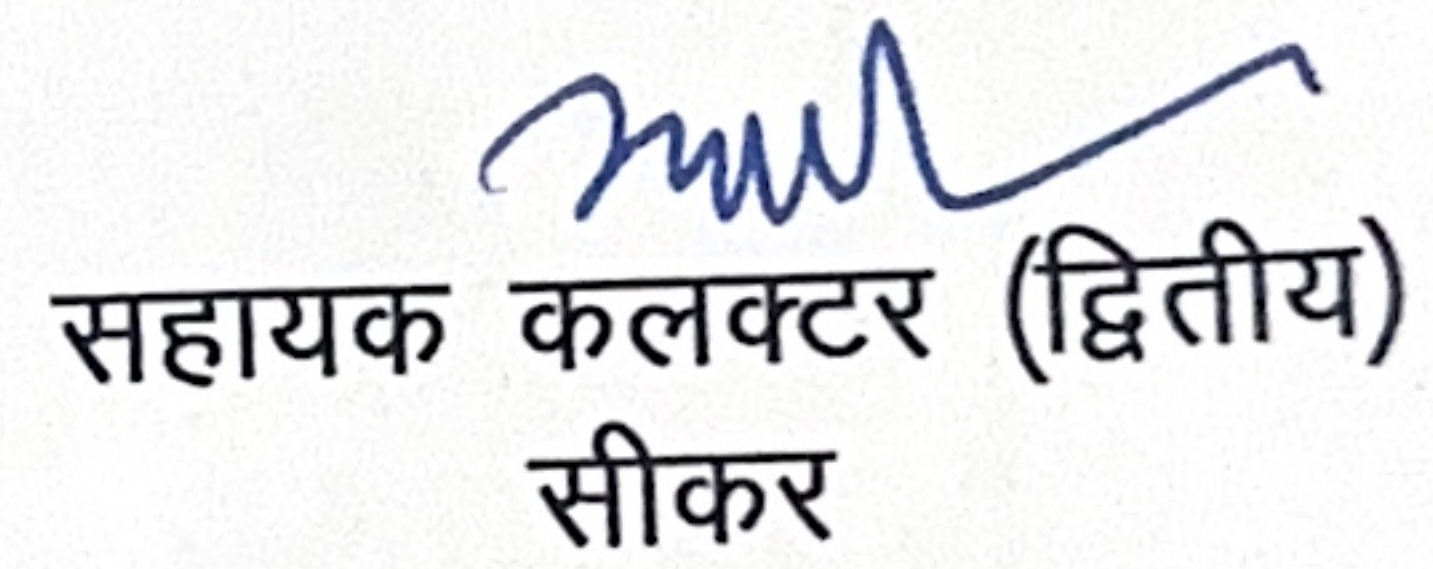 सहायक कलक्टर (द्वितीय)
सीकर